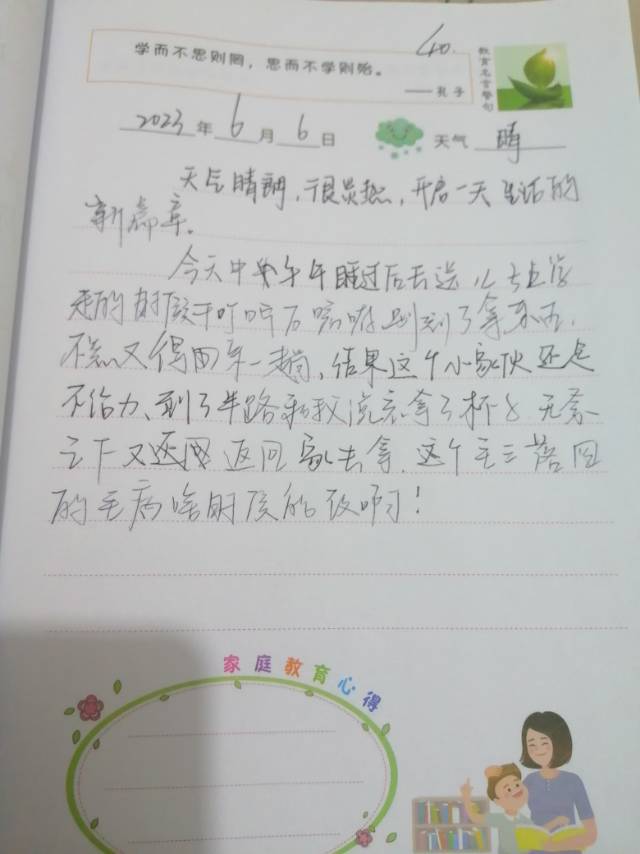 40.
学而不思则罔，思而不学则殆。
——孔子
教育名言警句
2023年6月6日 天气 晴
天气晴朗，很炎热，开启一天生活的
新篇章。
今天中午午睡过后去送儿子上学
走的时候千叮咛万嘱咐别忘了拿东西，
不然又得回来一趟，结果这个小家伙还是
不给力、到了半路和我说忘拿了杯子 无奈
之下又返回家去拿，这个丢三落四
的毛病啥时候能改啊！
家庭教育心得